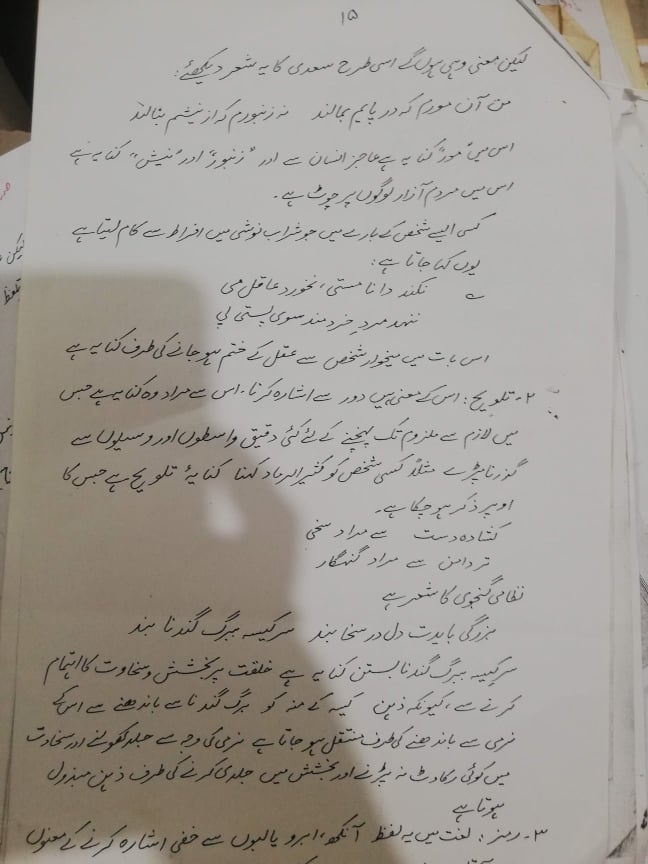 ۱۵
لیکن معنی وہی ہوں گے اسی طرح سعدی کا یہ شعر دیکھئے:
من آن مورم کہ در پایم بمالند نہ زنبورم کہ از نیشم بنالند
اس میں "مور" کنایہ ہے عاجز انسان سے اور "زنبور" اور "نیش" کنایہ ہے
اس میں مردم آزار لوگوں پر چوٹ ہے۔
کسی ایسے شخص کے بارے میں جو شراب نوشی میں افراط سے کام لیتا ہے
یوں کہا جاتا ہے:
نکند دانا مستی، نخورد عاقل می
ننہد مردِ خردمند سوی پستی پی
اس بات میں میخوار شخص سے عقل کے ختم ہو جانے کی طرف کنایہ ہے
۲۔ تلویح: اس کے معنی ہیں دور سے اشارہ کرنا۔ اس سے مراد وہ کنایہ ہے جس
میں لازم سے ملزوم تک پہنچنے کے لئے کئی دقیق واسطوں اور وسیلوں سے
گزرنا پڑے مثلاً کسی شخص کو کثیر الرماد کہنا کنایۂ تلویح ہے جس کا
اوپر ذکر ہو چکا ہے۔
کشادہ دست سے مراد سخی
تر دامن سے مراد گنہگار
نظامی گنجوی کا شعر ہے
بزرگی بایدت دل در سخا بند سرکیسہ ببرگ گندنا بند
سرکیسہ ببرگ گندنا بستن کنایہ ہے خلقت پر بخشش و سخاوت کا اہتمام
کرنے سے، کیونکہ ذہن کیسہ کے منہ کو برگ گندنا سے باندھنے سے اس کے
نرمی سے باندھنے کی طرف منتقل ہو جاتا ہے نرمی کی وجہ سے جلد کھولنے اور سخاوت
میں کوئی رکاوٹ نہ پڑنے اور بخشش میں جلدی کرنے کی طرف ذہن مبذول
ہوتا ہے
۳۔ رمز: لغت میں یہ لفظ آنکھ، ابرو یا لبوں سے خفی اشارہ کرنے کے معنوں